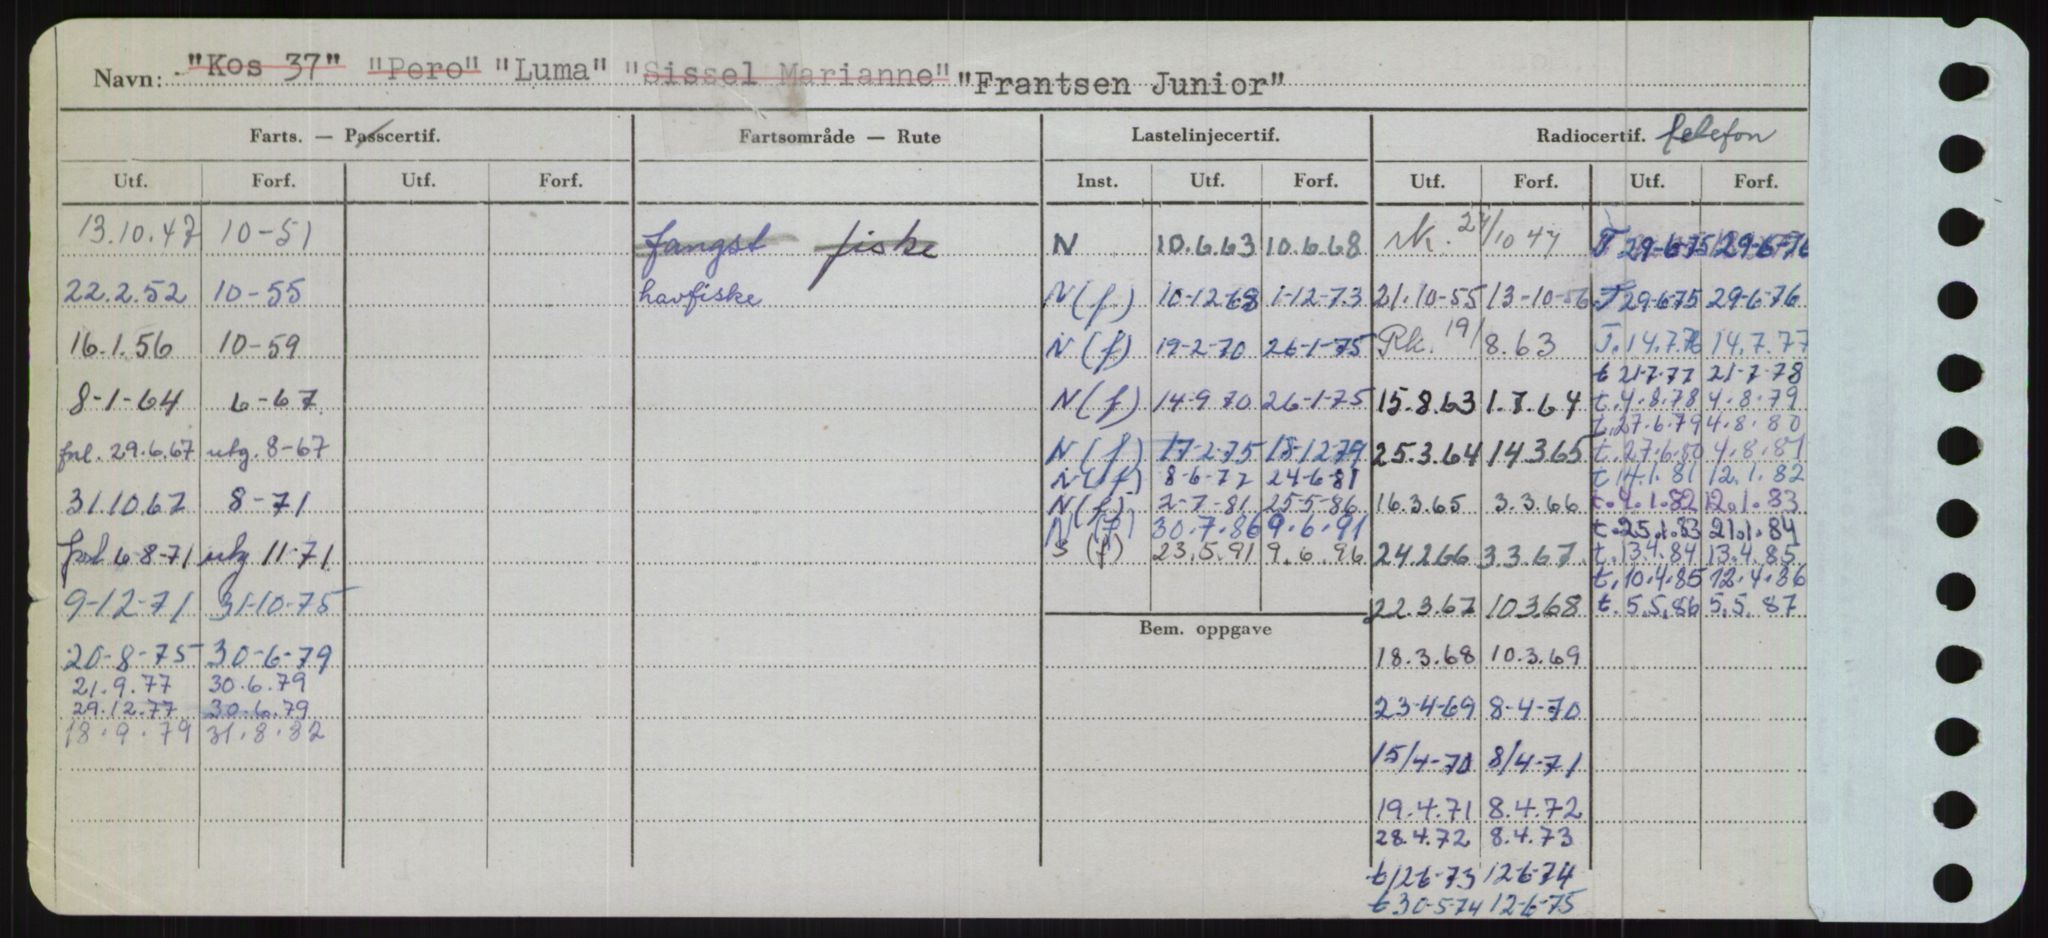 Navn: "Kos 37" "Pero" "Luma" "Sissel Marianne" "Frantsen Junior"
Farts. — Passcertif. Fartsområde — Rute Lastelinjecertif. Radiocertif. telefon
Utf. Forf. Utf. Forf. Inst. Utf. Forf. Utf. Forf. Utf. Forf.
13.10.47 10-51
22.2.52 10-55
16.1.56 10-59
8-1-64 6-67
fnl. 29.6.67 utg. 8-67
31.10.67 8-71
6-8-71 utg 11-71
9-12-71 31-10-75
20-8-75 30-6-79
21.9.77 30.6.79
29.12.77 30.6.79
18.9.79 31.8.82
fangst fiske
havfiske
N 10.6.63 10.6.68
N(f) 10-12-68 1-12-73
N(f) 19-2-70 26-1-75
N(f) 14-9 70 26-1-75
N(f) 17-2-75 18-12-79
N(f) 8-6-77 24-6-81
N(f) 2-7-81 25-5-86
N(f) 30.7.86 9.6.91
S (f) 23.5.91 9.6.96
Bem. oppgave
rk. 27/10 47
21.10-55 13-10-56
Rk. 19/8.63
15.8.63 1.7.64
25.3.64 14.3.65
16.3.65 3.3.66
24.2.66 3.3.67.
22.3.67 10.3.68
18.3.68 10.3.69
23-4-69 8-4-70
15/4-70 8/4-71
19.4.71 8.4.72
28.4.72 8.4.73
t 12-6-73 12-6-74
t 30-5-74 12-6-75
T 29-6-75 29-6-76
T 29-6-75 29-6-76
T. 14.7.76 14.7.77
t 21-7-77 21-7-78
t. 4.8.78 4.8.79
t. 27.6.79 4.8.80
t. 27.6.80 4.8.81
t 14.1.81 12.1.82
t. 4.1.82 12.1.83
t. 25.1.83 21.1.84
t. 13.4.84 13.4.85
t. 10.4.85 12.4.86
t. 5.5.86 5.5.87